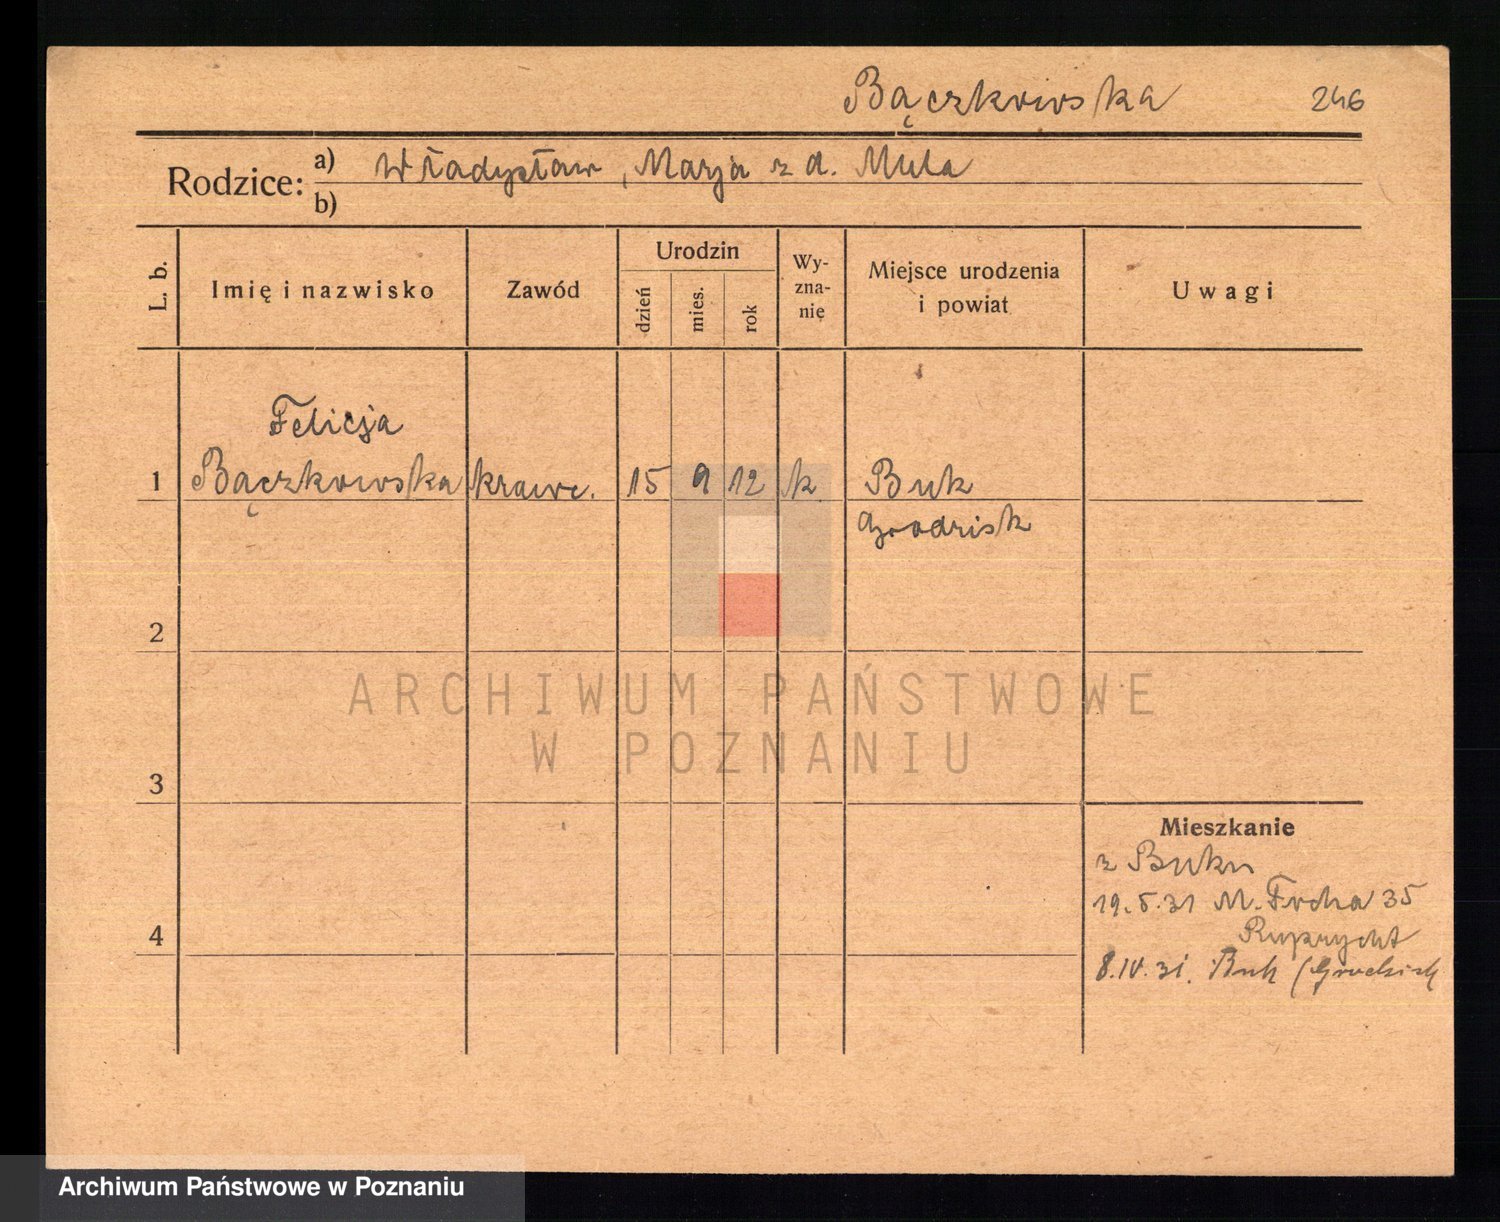 Bączkowska 246
Rodzice: a) Władysław, Marja z d. Muła
b)
L. b. Imię i nazwisko Zawód Urodzin dzień mies. rok Wyznanię Miejsce urodzenia i powiat Uwagi
Felicja
1 Bączkowska krawc. 15 9 12 k Buk
Grodzisk
2
ARCHIWUM PAŃSTWOWE
W POZNANIU
3
Mieszkanie
z Buku
19.5.31 M. Focha 35
4 Ruprycht
8.IV.31. Buk (Grodzisk
Archiwum Państwowe w Poznaniu